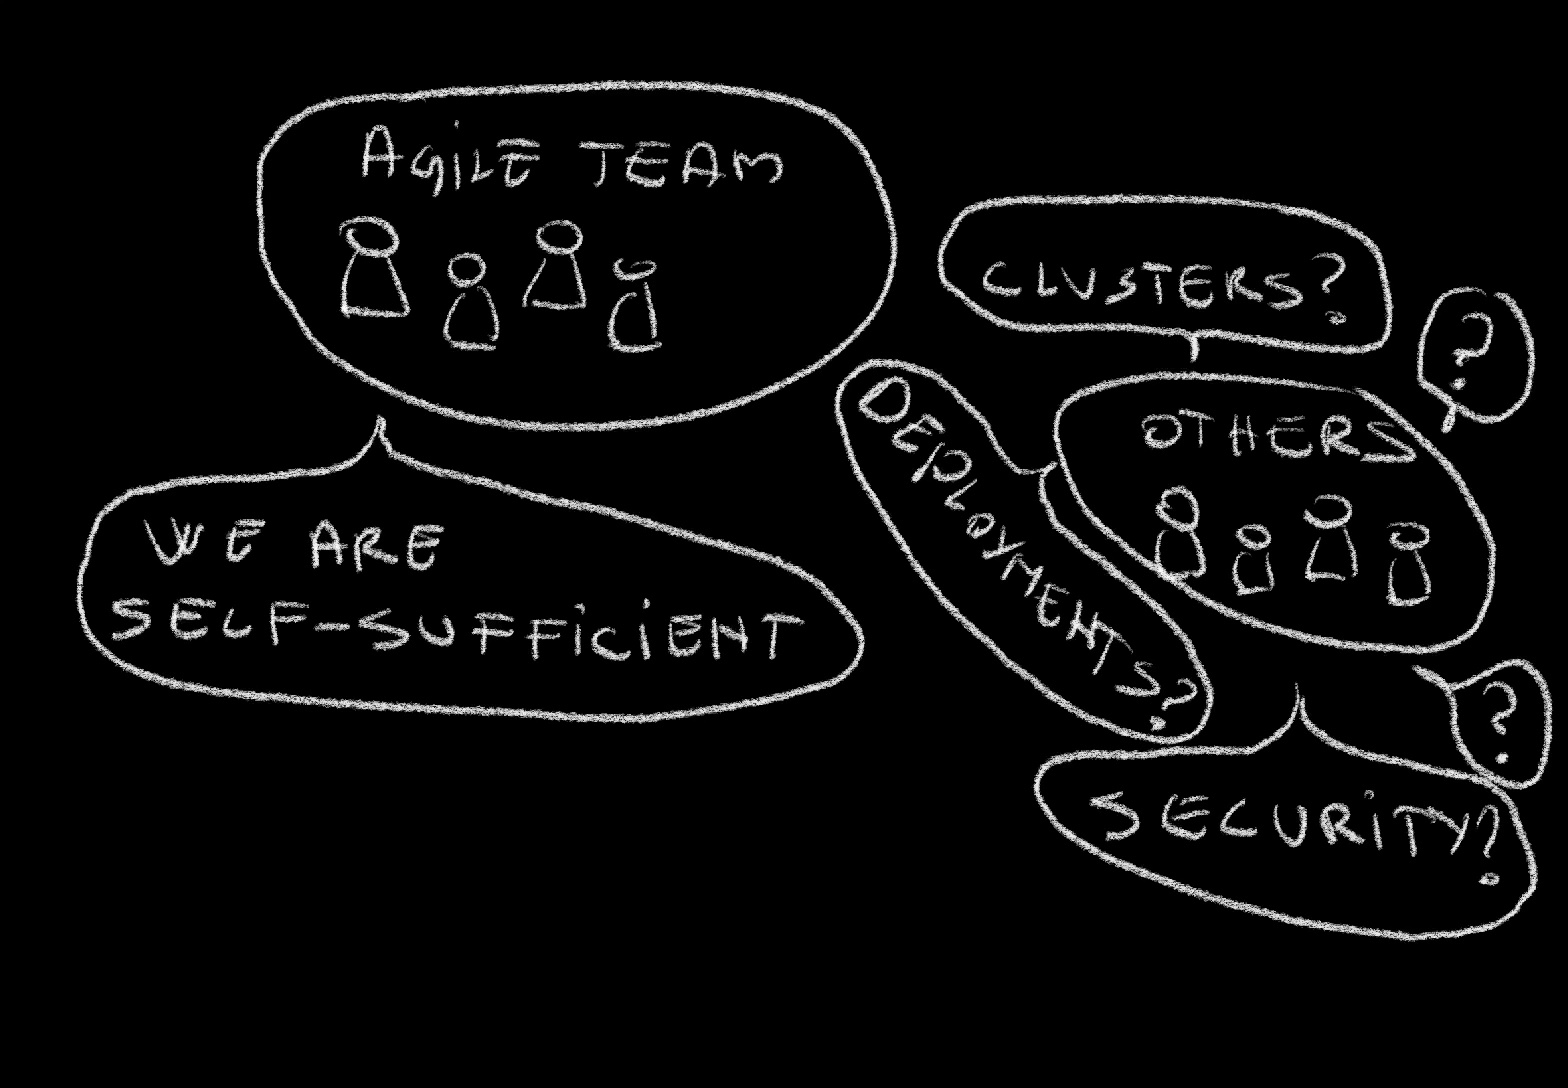 AGiLE TEAM
WE ARE
SELF-SUFFiCiENT
CLUSTERS?
?
DEPLOYMENTS?
OTHERS
?
SECURiTY?